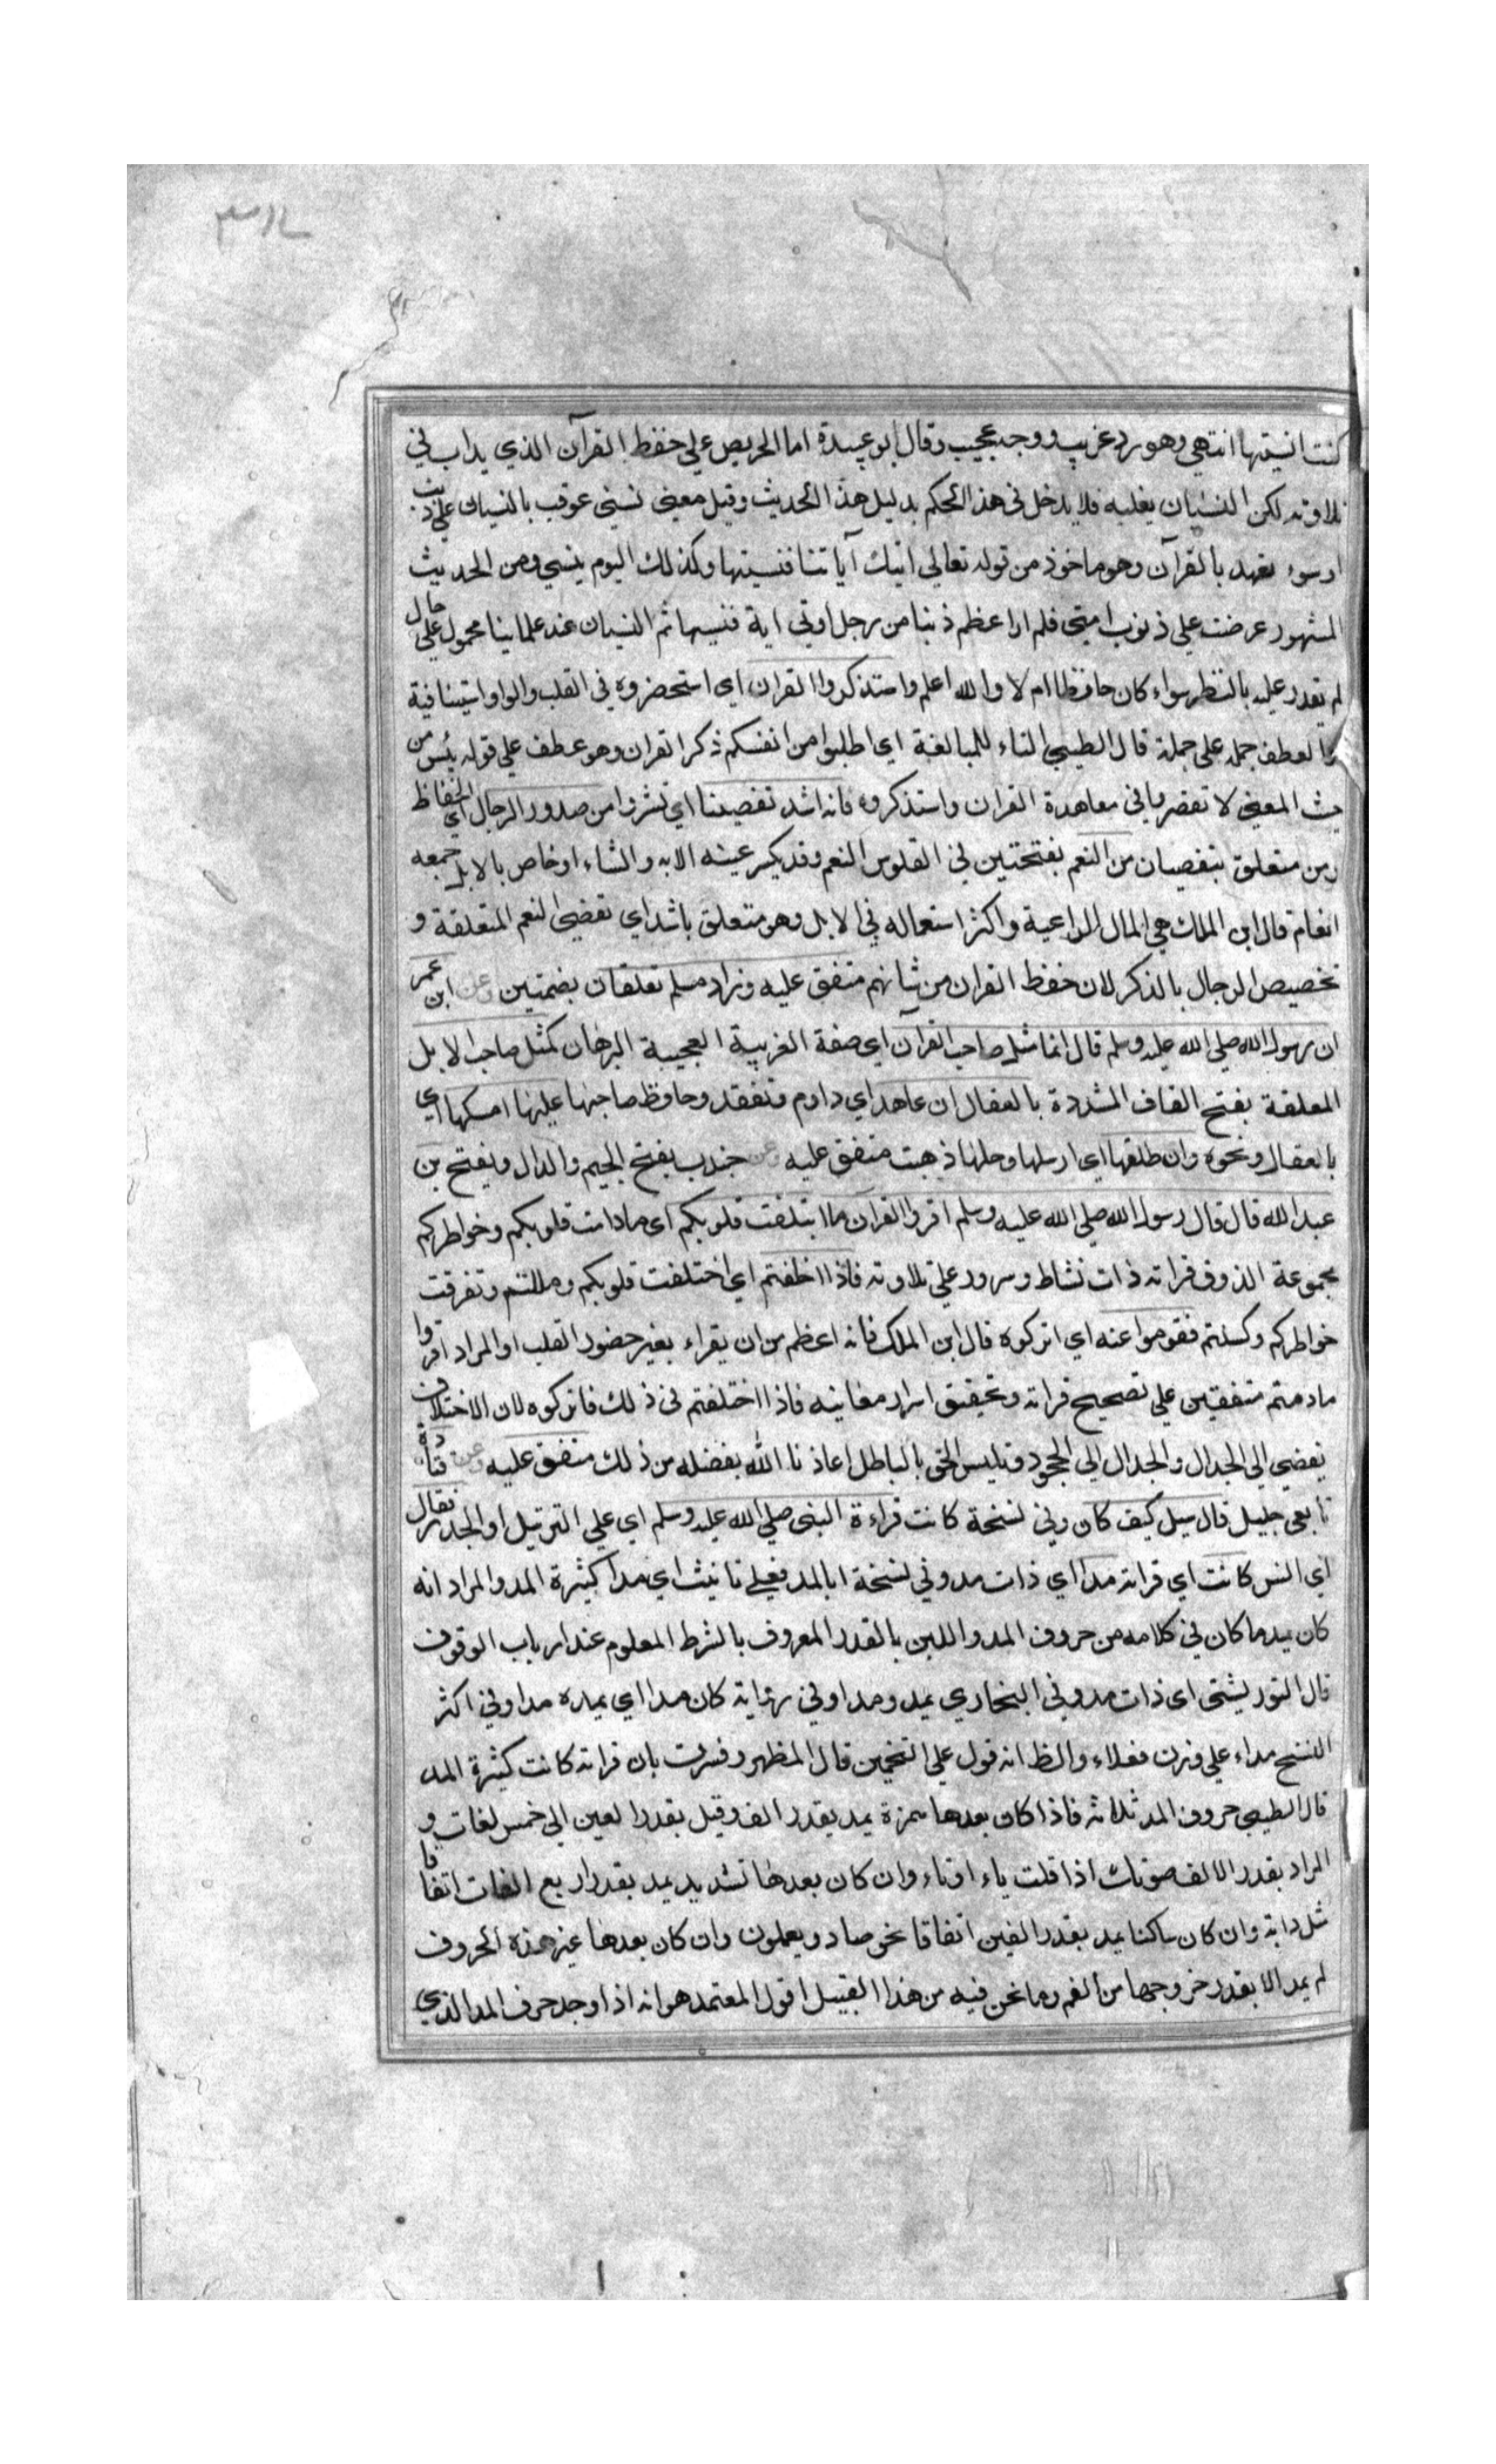 كنت انسيتها انتهى وهو رد غريب ووجه عجيب وقال ابو عبيدة اما الحريص على حفظ القرآن الذي يداب في
تلاوته لكن النسيان يغلبه فلا يدخل في هذا الحكم بدليل هذا الحديث وقيل معنى نسّي عوقب بالنسيان على ذنب
او سوء تعهد بالقرآن وهو ماخوذ من قوله تعالى اتتك آياتنا فنسيتها وكذلك اليوم ينسى ومن الحديث
المشهور عرضت على ذنوب امتي فلم ار اعظم ذنبا من رجل اوتي اية فنسيها ثم النسيان عند علماينا محمول على حال
لم يقدر عليه بالنظر سواء كان حافظا ام لا والله اعلم واستذكروا القران اي استحضروه في القلب والواو استينافية
والعطف جملة على جملة قال الطيبي التاء للمبالغة اي اطلبوا من انفسكم ذكر القران وهو عطف على قوله بئس من
حيث المعنى لا تقصروا في معاهدة القران واستذكروه فانه اشد تفصيا اي تشردا من صدور الرجال اي الحفاظ
ومن متعلق بتفصيان من النعم بفتحتين في القلوس النعم وقد يكسر عينه الابه والشاء او خاص بالابل جمعه
انعام قال ابن الملك هي المال الراعية واكثر استعماله في الابل وهو متعلق باشد اي تفضى النعم المتعلقة و
تخصيص الرجال بالذكر لان حفظ القران من شانهم متفق عليه وزاد مسلم تعلقان بضمتين وعن ابن عمر
ان رسول الله صلى الله عليه وسلم قال انما مثل صاحب القرآن اي صفة الغريبة العجيبة البرهان كمثل صاحب الابل
المعلقة بفتح القاف المشددة بالعقال ان عاهد اي داوم وتفقد وحافظ صاحبها عليها امسكها اي
بالعقال ونحوه وان طلقها اي ارسلها وحلها ذهبت متفق عليه وعن جندب بفتح الجيم والدال ويفتح بن
عبد الله قال قال رسول الله صلى الله عليه وسلم اقروا القرآن ما ايتلفت قلوبكم اي مادامت قلوبكم وخواطركم
مجموعة الذوق قراته ذات نشاط وسرور على تلاوته فاذا اختلفتم اي اختلفت قلوبكم ومللتم وتفرقت
خواطركم وكسلتم فقوموا عنه اي اتركوه قال ابن الملك فانه اعظم من ان يقراء بغير حضور القلب او المراد اقروا
مادمتم متفقين على تصحيح قراته وتحقيق اسرار معانيه فاذا اختلفتم في ذلك فاتركوه لان الاختلاف
يفضي الى الجدال والجدال الى الجحود وتلبيس الحق بالباطل اعاذنا الله بفضله من ذلك متفق عليه وعن قتادة
تابعي جليل قال سيل كيف كان وفي نسخة كانت قراءة النبي صلى الله عليه وسلم اي على الترتيل او الحدر فقال
اي انس كانت اي قراته مدا اي ذات مد وفي نسخة ابالمد فعلى تانيث اي مدا كثيرة المد والمراد انه
كان يمد ما كان في كلامه من حروف المد واللين بالقدر المعروف بالشرط المعلوم عند ارباب الوقوف
قال التورپشتي اي ذات مد وفي البخاري يمد ومدا وفي رواية كان مدا اي يمده مدا وفي اكثر
النسخ مداء على وزن فعلاء والظ انه قول على التخمين قال المظهر وفسرت بان قراته كانت كثيرة المد
قال الطيبي حروف المد ثلاثة فاذا كان بعدها همزة يمد بقدر الف وقيل بقدر الفين الى خمس الفات و
المراد بقدر الالف صوتك اذا قلت ياء او تاء وان كان بعدها تشديد يمد بقدر اربع الفات اتفاقا
مثل دابة وان كان ساكنا يمد بقدر الفين اتفاقا نحو صاد ويعملون وان كان بعدها غير هذه الحروف
لم يمد الا بقدر خروجها من الفم وما نحن فيه من هذا القبيل اقول المعتمد هو انه اذا وجد حرف المد الذي